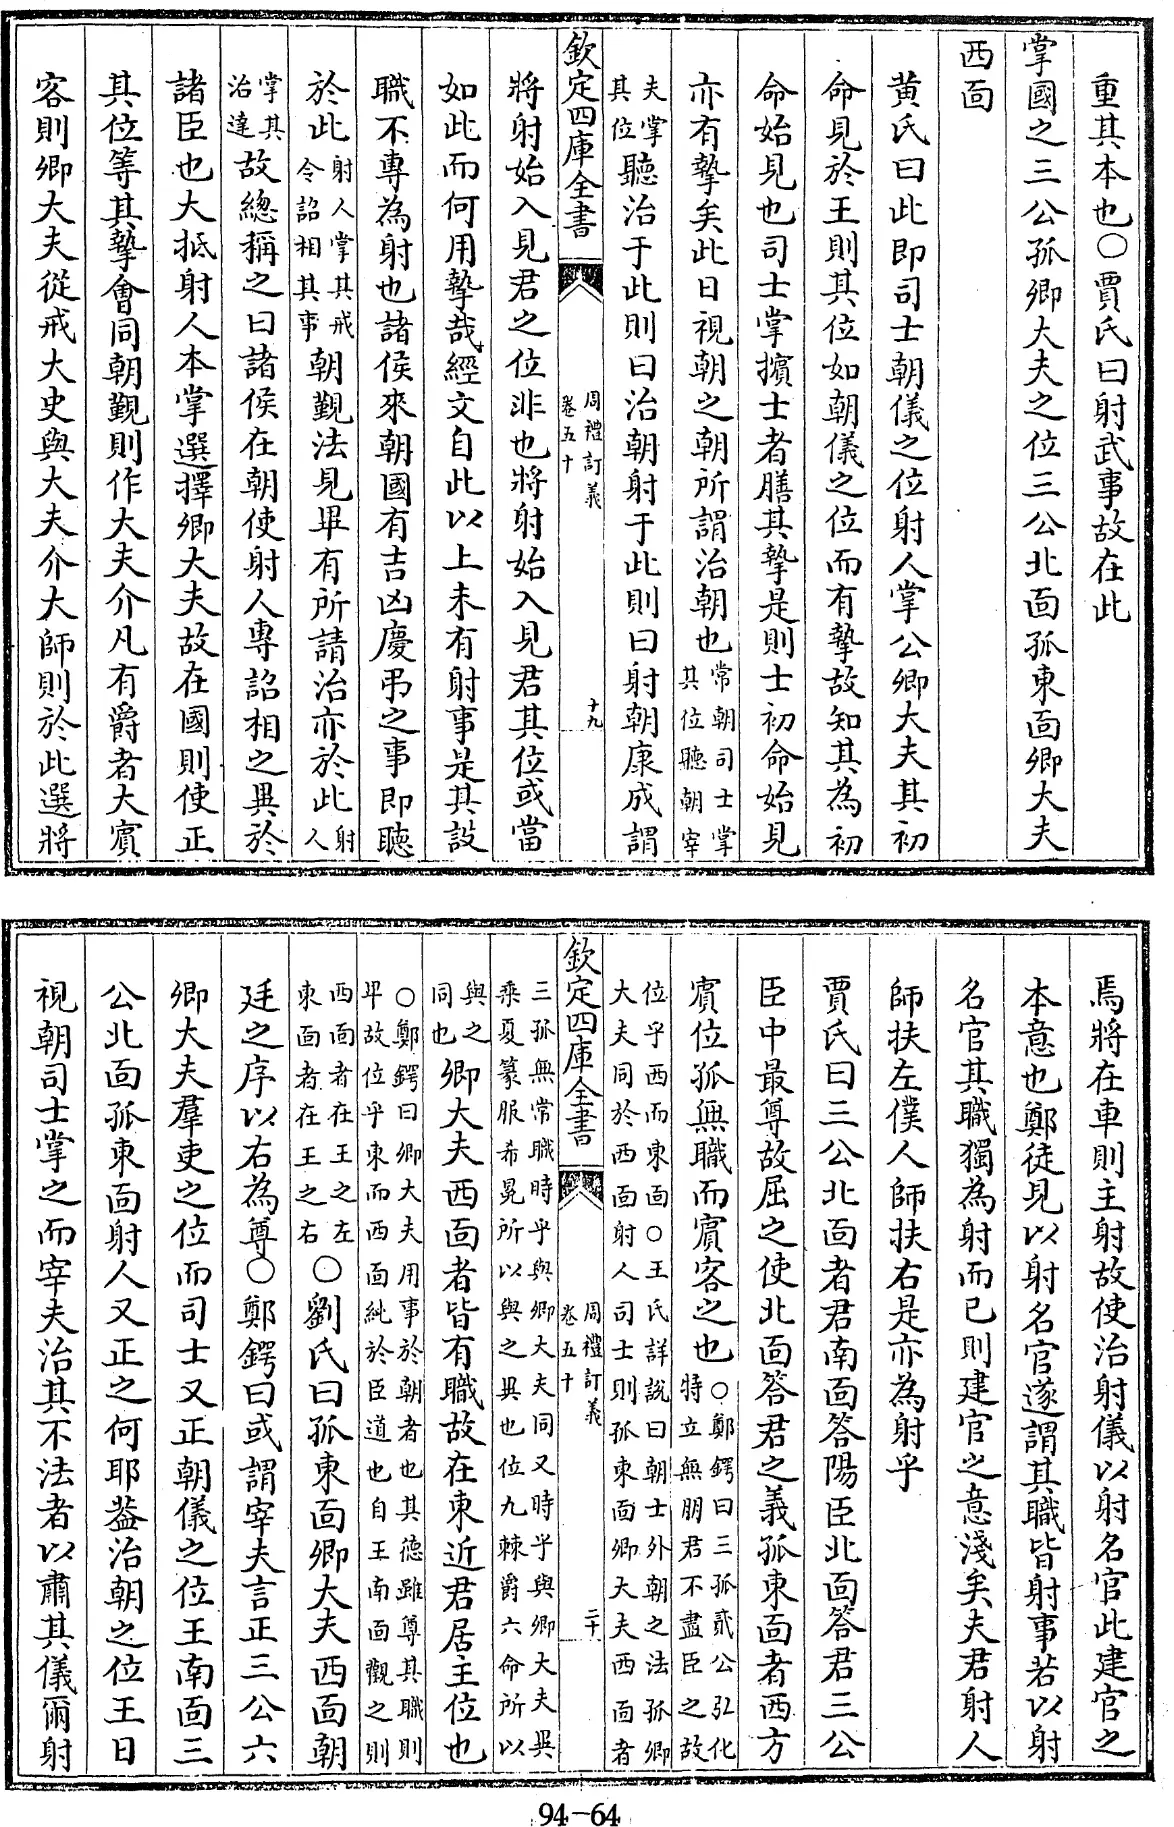 重其本也○賈氏曰射武事故在此
掌國之三公孤卿大夫之位三公北面孤東面卿大夫
西面
黄氏曰此即司士朝儀之位射人掌公卿大夫其初
命見於王則其位如朝儀之位而有摯故知其為初
命始見也司士掌擯士者膳其摯是則士初命始見
亦有摯矣此日視朝之朝所謂治朝也常朝司士掌其位聽朝宰
夫掌其位聽治于此則曰治朝射于此則曰射朝康成謂
欽定四庫全書
周禮訂義
卷五十
十九
將射始入見君之位非也將射始入見君其位或當
如此而何用摯哉經文自此以上未有射事是其設
職不專為射也諸侯來朝國有吉凶慶弔之事即聽
於此射人掌其戒令詔相其事朝覲法見畢有所請治亦於此射人
掌其治達故總稱之曰諸侯在朝使射人專詔相之異於
諸臣也大抵射人本掌選擇卿大夫故在國則使正
其位等其摯會同朝覲則作大夫介凡有爵者大賓
客則卿大夫從戒大史與大夫介大師則於此選將
焉將在車則主射故使治射儀以射名官此建官之
本意也鄭徒見以射名官遂謂其職皆射事若以射
名官其職獨為射而已則建官之意淺矣夫君射人
師扶左僕人師扶右是亦為射乎
賈氏曰三公北面者君南面答陽臣北面答君三公
臣中最尊故屈之使北面答君之義孤東面者西方
賓位孤無職而賓客之也○鄭鍔曰三孤貳公弘化特立無朋君不盡臣之故
位乎西而東面○王氏詳說曰朝士外朝之法孤卿大夫同於西面射人司士則孤東面卿大夫西面者
欽定四庫全書
周禮訂義
卷五十
二十
三孤無常職時乎與卿大夫同又時乎與卿大夫異乘夏篆服希冕所以與之異也位九棘爵六命所以
與之同也卿大夫西面者皆有職故在東近君居主位也
○鄭鍔曰卿大夫用事於朝者也其德雖尊其職則畢故位乎東而西面純於臣道也自王南面觀之則
西面者在王之左東面者在王之右○劉氏曰孤東面卿大夫西面朝
廷之序以右為尊○鄭鍔曰或謂宰夫言正三公六
卿大夫羣吏之位而司士又正朝儀之位王南面三
公北面孤東面射人又正之何耶葢治朝之位王日
視朝司士掌之而宰夫治其不法者以肅其儀爾射
94-64